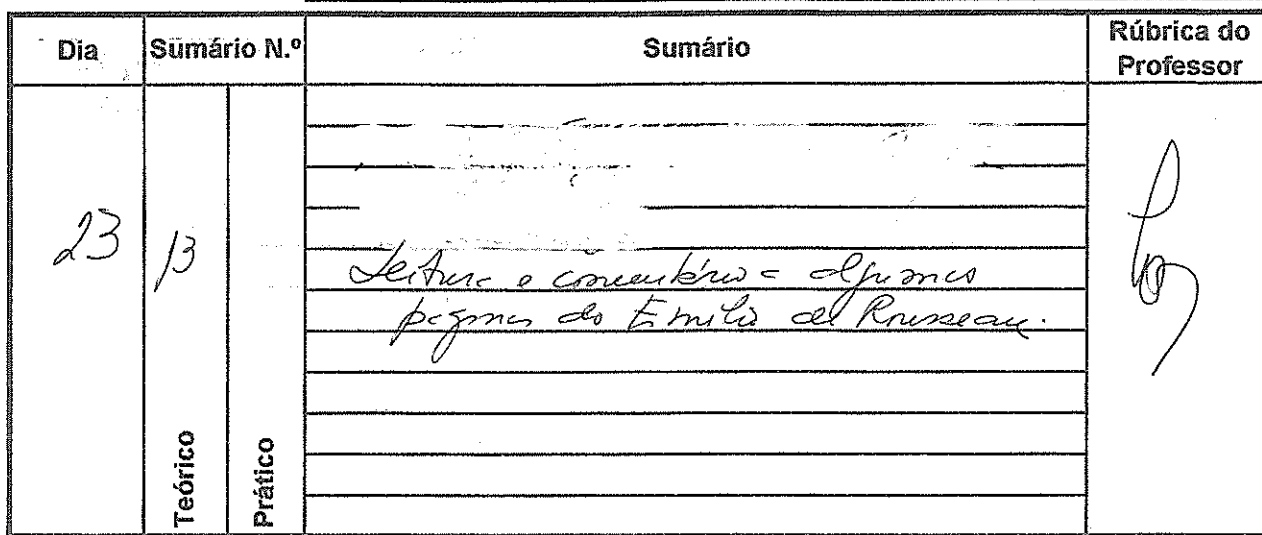 Dia Sumário N.º Sumário Rúbrica do Professor
23 13 Leitura e comentário a algumas
páginas do Emílio de Rousseau.
Teórico Prático